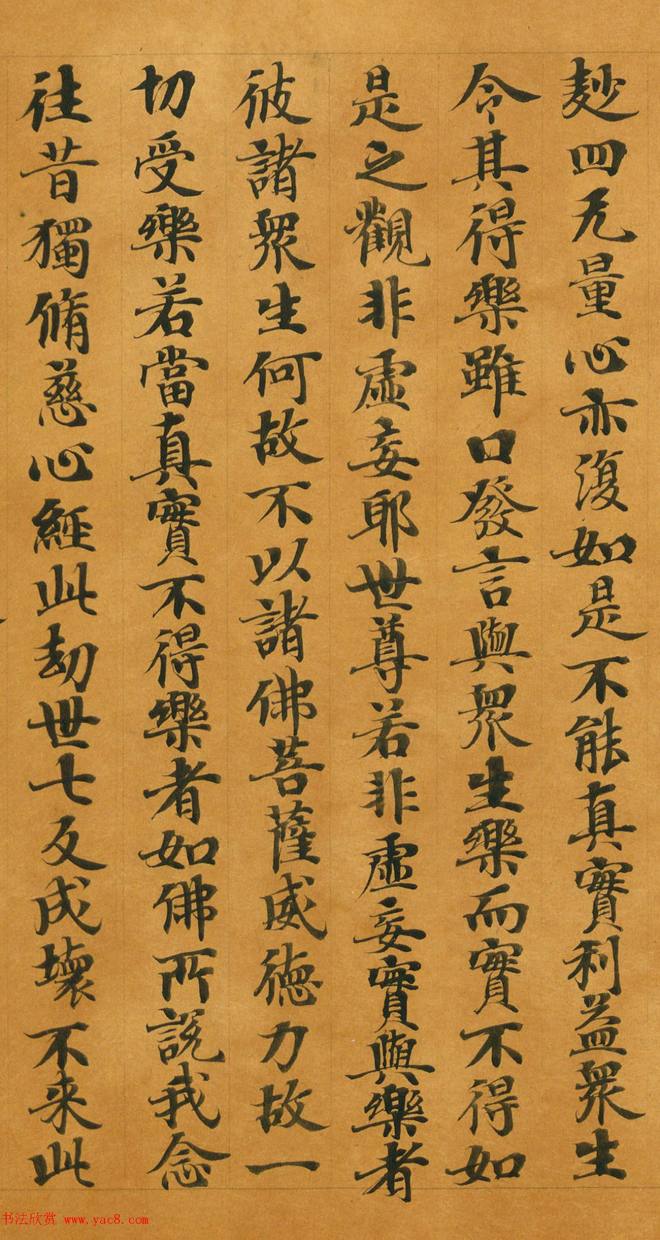 麨四无量心亦復如是不能真實利益眾生
令其得樂雖口發言與眾生樂而實不得如
是之觀非虛妄耶世尊若非虛妄實與樂者
彼諸眾生何故不以諸佛菩薩威德力故一
切受樂若當真實不得樂者如佛所說我念
往昔獨脩慈心經此劫世七反成壞不來此
书法欣赏 www.yac8.com